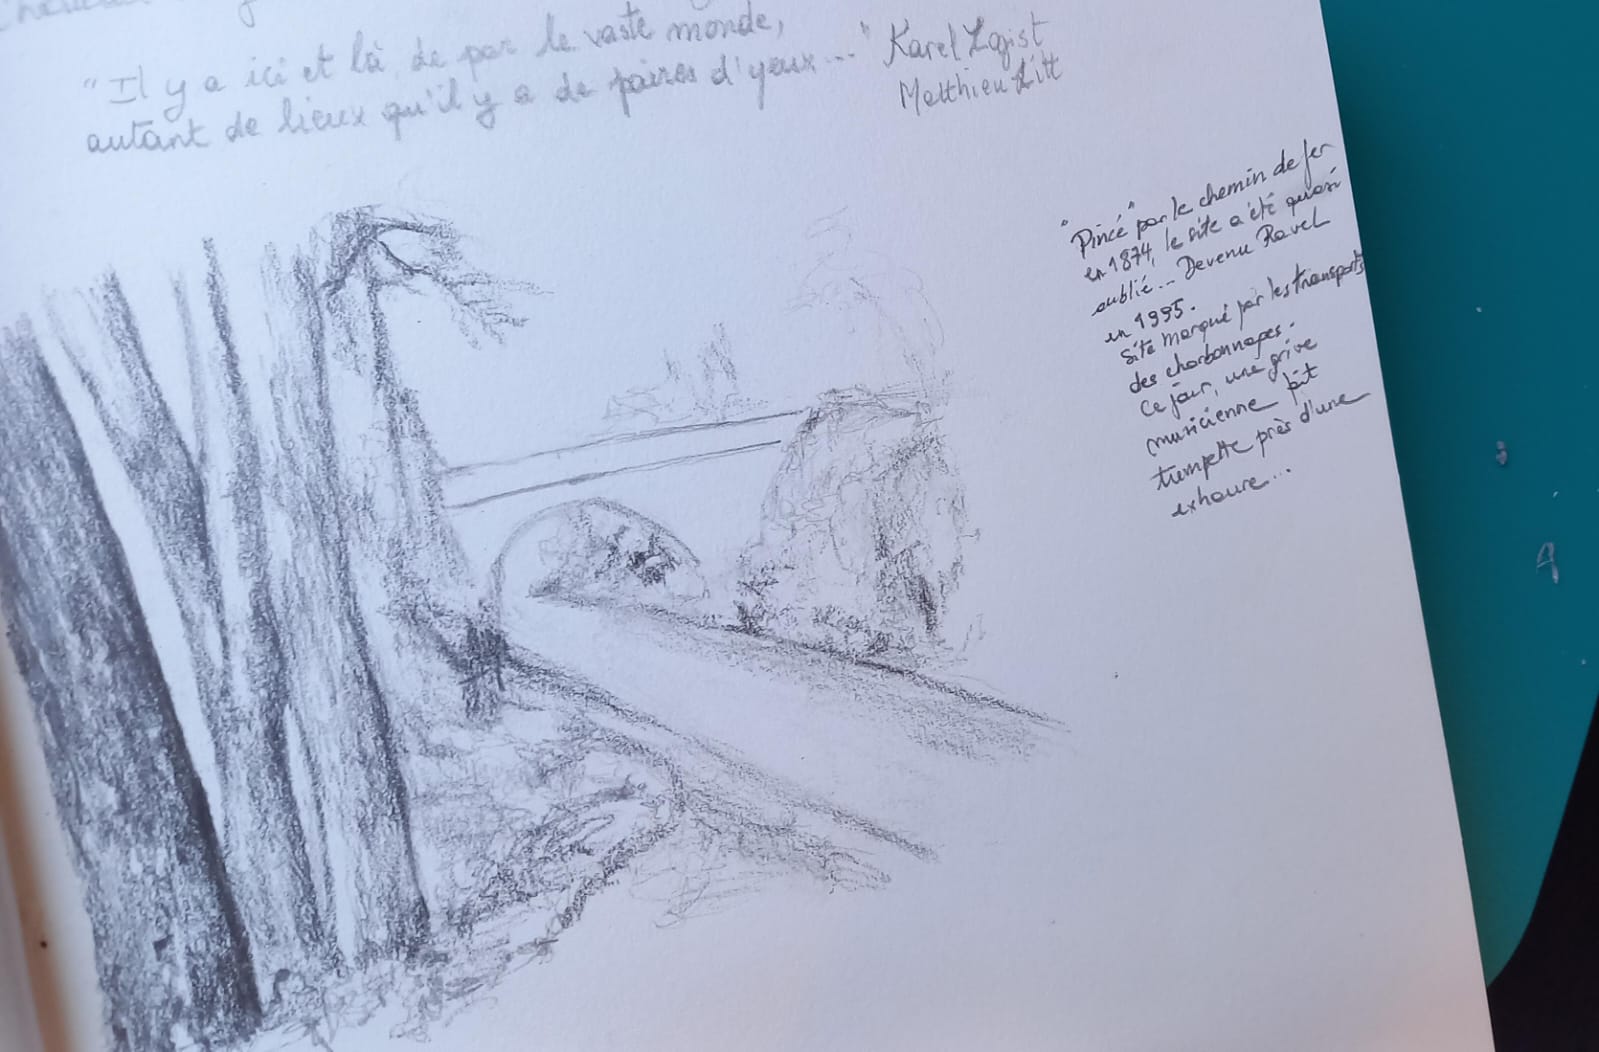 "Il y a ici et là, de par le vaste monde,
autant de lieux qu'il y a de paires d'yeux..." Karel Logist
Matthieu Litt
"Pincé" par le chemin de fer
en 1874, le site a été quasi
oublié... Devenu Ravel
en 1995.
Site marqué par les transports
des charbonnages.
Ce jour, une grive
musicienne fait
trempette près d'une
exhaure...